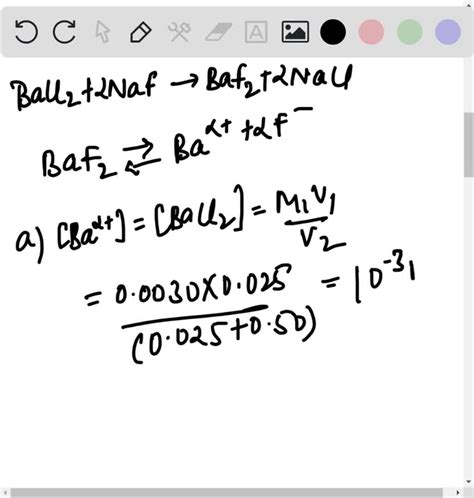 BaCl₂+2Naf → Baf₂+2NaCl
Baf₂ ⇌ Ba²⁺ +2f⁻
a) [Ba²⁺] = [BaCl₂] = M₁V₁/V₂
= 0.0030×0.025/(0.025+0.50) = 10⁻³,